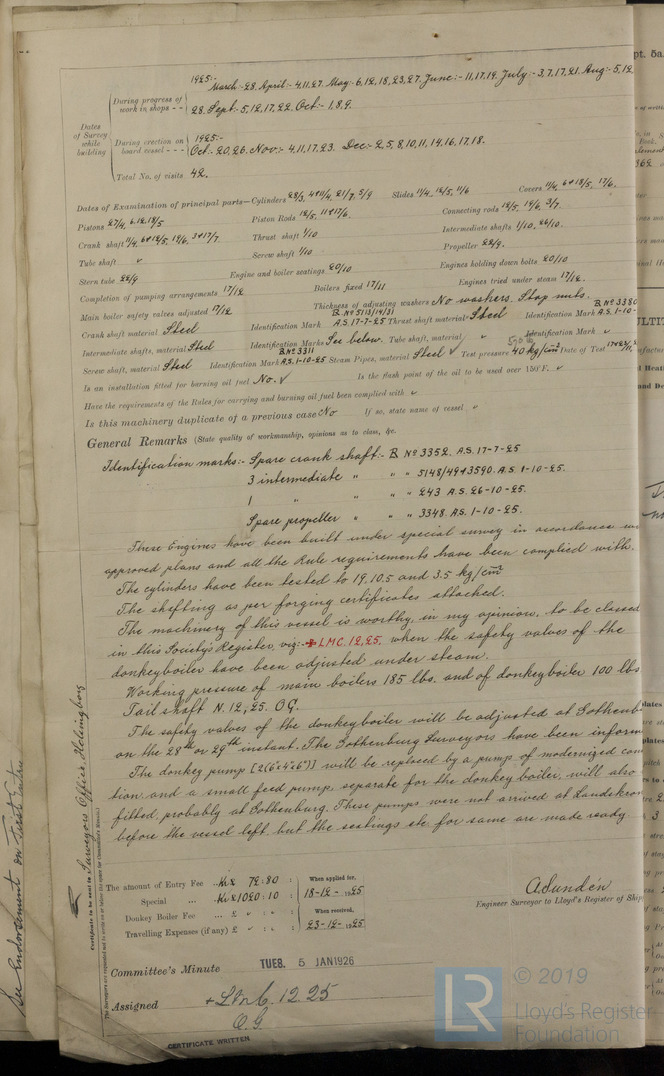 1925:-
During progress of work in shops - - March:-28. April:- 4,11,27. May:- 6,12,18,23,27. June:- 11,17,19. July:- 3,7,17,21. Aug:- 5,12
28. Sept:- 5,12,17,22. Oct:- 1,8,9.
Dates of Survey while building
1925:-
During erection on board vessel - - - Oct:- 20,26. Nov:- 4,11,17,23. Dec:- 2,5,8,10,11,14,16,17,18.
Total No. of visits 42.
Dates of Examination of principal parts—Cylinders 28/3, 4+11/4, 21/7, 5/9 Slides 11/4, 12/5, 11/6 Covers 11/4, 6+18/5, 17/6.
Pistons 27/4, 6.12.18/5 Piston Rods 18/5, 11+17/6. Connecting rods 18/5, 19/6, 3/7.
Crank shaft 11/4, 6+12/5, 19/6, 3+17/7 Thrust shaft 1/10 Intermediate shafts 1/10, 26/10.
Tube shaft ✓ Screw shaft 1/10 Propeller 22/9.
Stern tube 22/9 Engine and boiler seatings 20/10 Engines holding down bolts 20/10
Completion of pumping arrangements 17/12 Boilers fixed 17/11 Engines tried under steam 17/12.
Main boiler safety valves adjusted 17/12 Thickness of adjusting washers No washers. Stop nuts.
Crank shaft material Steel Identification Mark B.Nº 5113/14/31 A.S. 17-7-25 Thrust shaft material Steel Identification Mark B.Nº 3380 A.S. 1-10-
Intermediate shafts, material Steel Identification Marks See below. Tube shaft, material ✓ Identification Mark ✓
Screw shaft, material Steel Identification Mark B.Nº 3311 A.S. 1-10-25 Steam Pipes, material Steel ✓ Test pressure 40 kg/cm² Date of Test
Is an installation fitted for burning oil fuel No. ✓ Is the flash point of the oil to be used over 150°F. ✓
Have the requirements of the Rules for carrying and burning oil fuel been complied with ✓
Is this machinery duplicate of a previous case No If so, state name of vessel ✓
General Remarks (State quality of workmanship, opinions as to class, &c.
Identification marks:- Spare crank shaft:- B Nº 3352. A.S. 17-7-25
3 intermediate " " " 5148/49+3590. A.S. 1-10-25.
1 " " " 243 A.S. 26-10-25.
Spare propeller " " " 3348. A.S. 1-10-25.
These Engines have been built under special survey in accordance
approved plans and all the Rule requirements have been complied with.
The cylinders have been tested to 19, 10,5 and 3.5 kg/cm²
The shafting as per forging certificates attached.
The machinery of this vessel is worthy, in my opinion, to be classed
in this Society's Register, viz:- ✠ LMC. 12,25. when the safety valves of the
donkeyboiler have been adjusted under steam.
Working pressure of main boilers 185 lbs. and of donkeyboiler 100 lbs
Tail shaft N. 12,25. OG.
The safety valves of the donkeyboiler will be adjusted at Gothenb
on the 28th or 29th instant. The Gothenburg Surveyors have been inform
The donkey pump [2(6"x4"x6")] will be replaced by a pump of modernized con
tion, and a small feed pump, separate for the donkeyboiler, will also
fitted, probably at Gothenburg. These pumps were not arrived at Landskron
before the vessel left, but the seatings etc for same are made ready.
Certificate to be sent to Surveyors Office, Helsingborg
See Endorsement on First Entry
The amount of Entry Fee .. Kr 72:80 : When applied for,
Special ... Kr 1020:10 : 18-12-1925
Donkey Boiler Fee ... £ ✓ : : When received,
Travelling Expenses (if any) £ ✓ : : 23-12-1925
A Sundén
Engineer Surveyor to Lloyd's Register of Ship
Committee's Minute TUES. 5 JAN 1926
Assigned + LMC. 12.25
O.G.
CERTIFICATE WRITTEN
LR © 2019
Lloyd's Register
Foundation